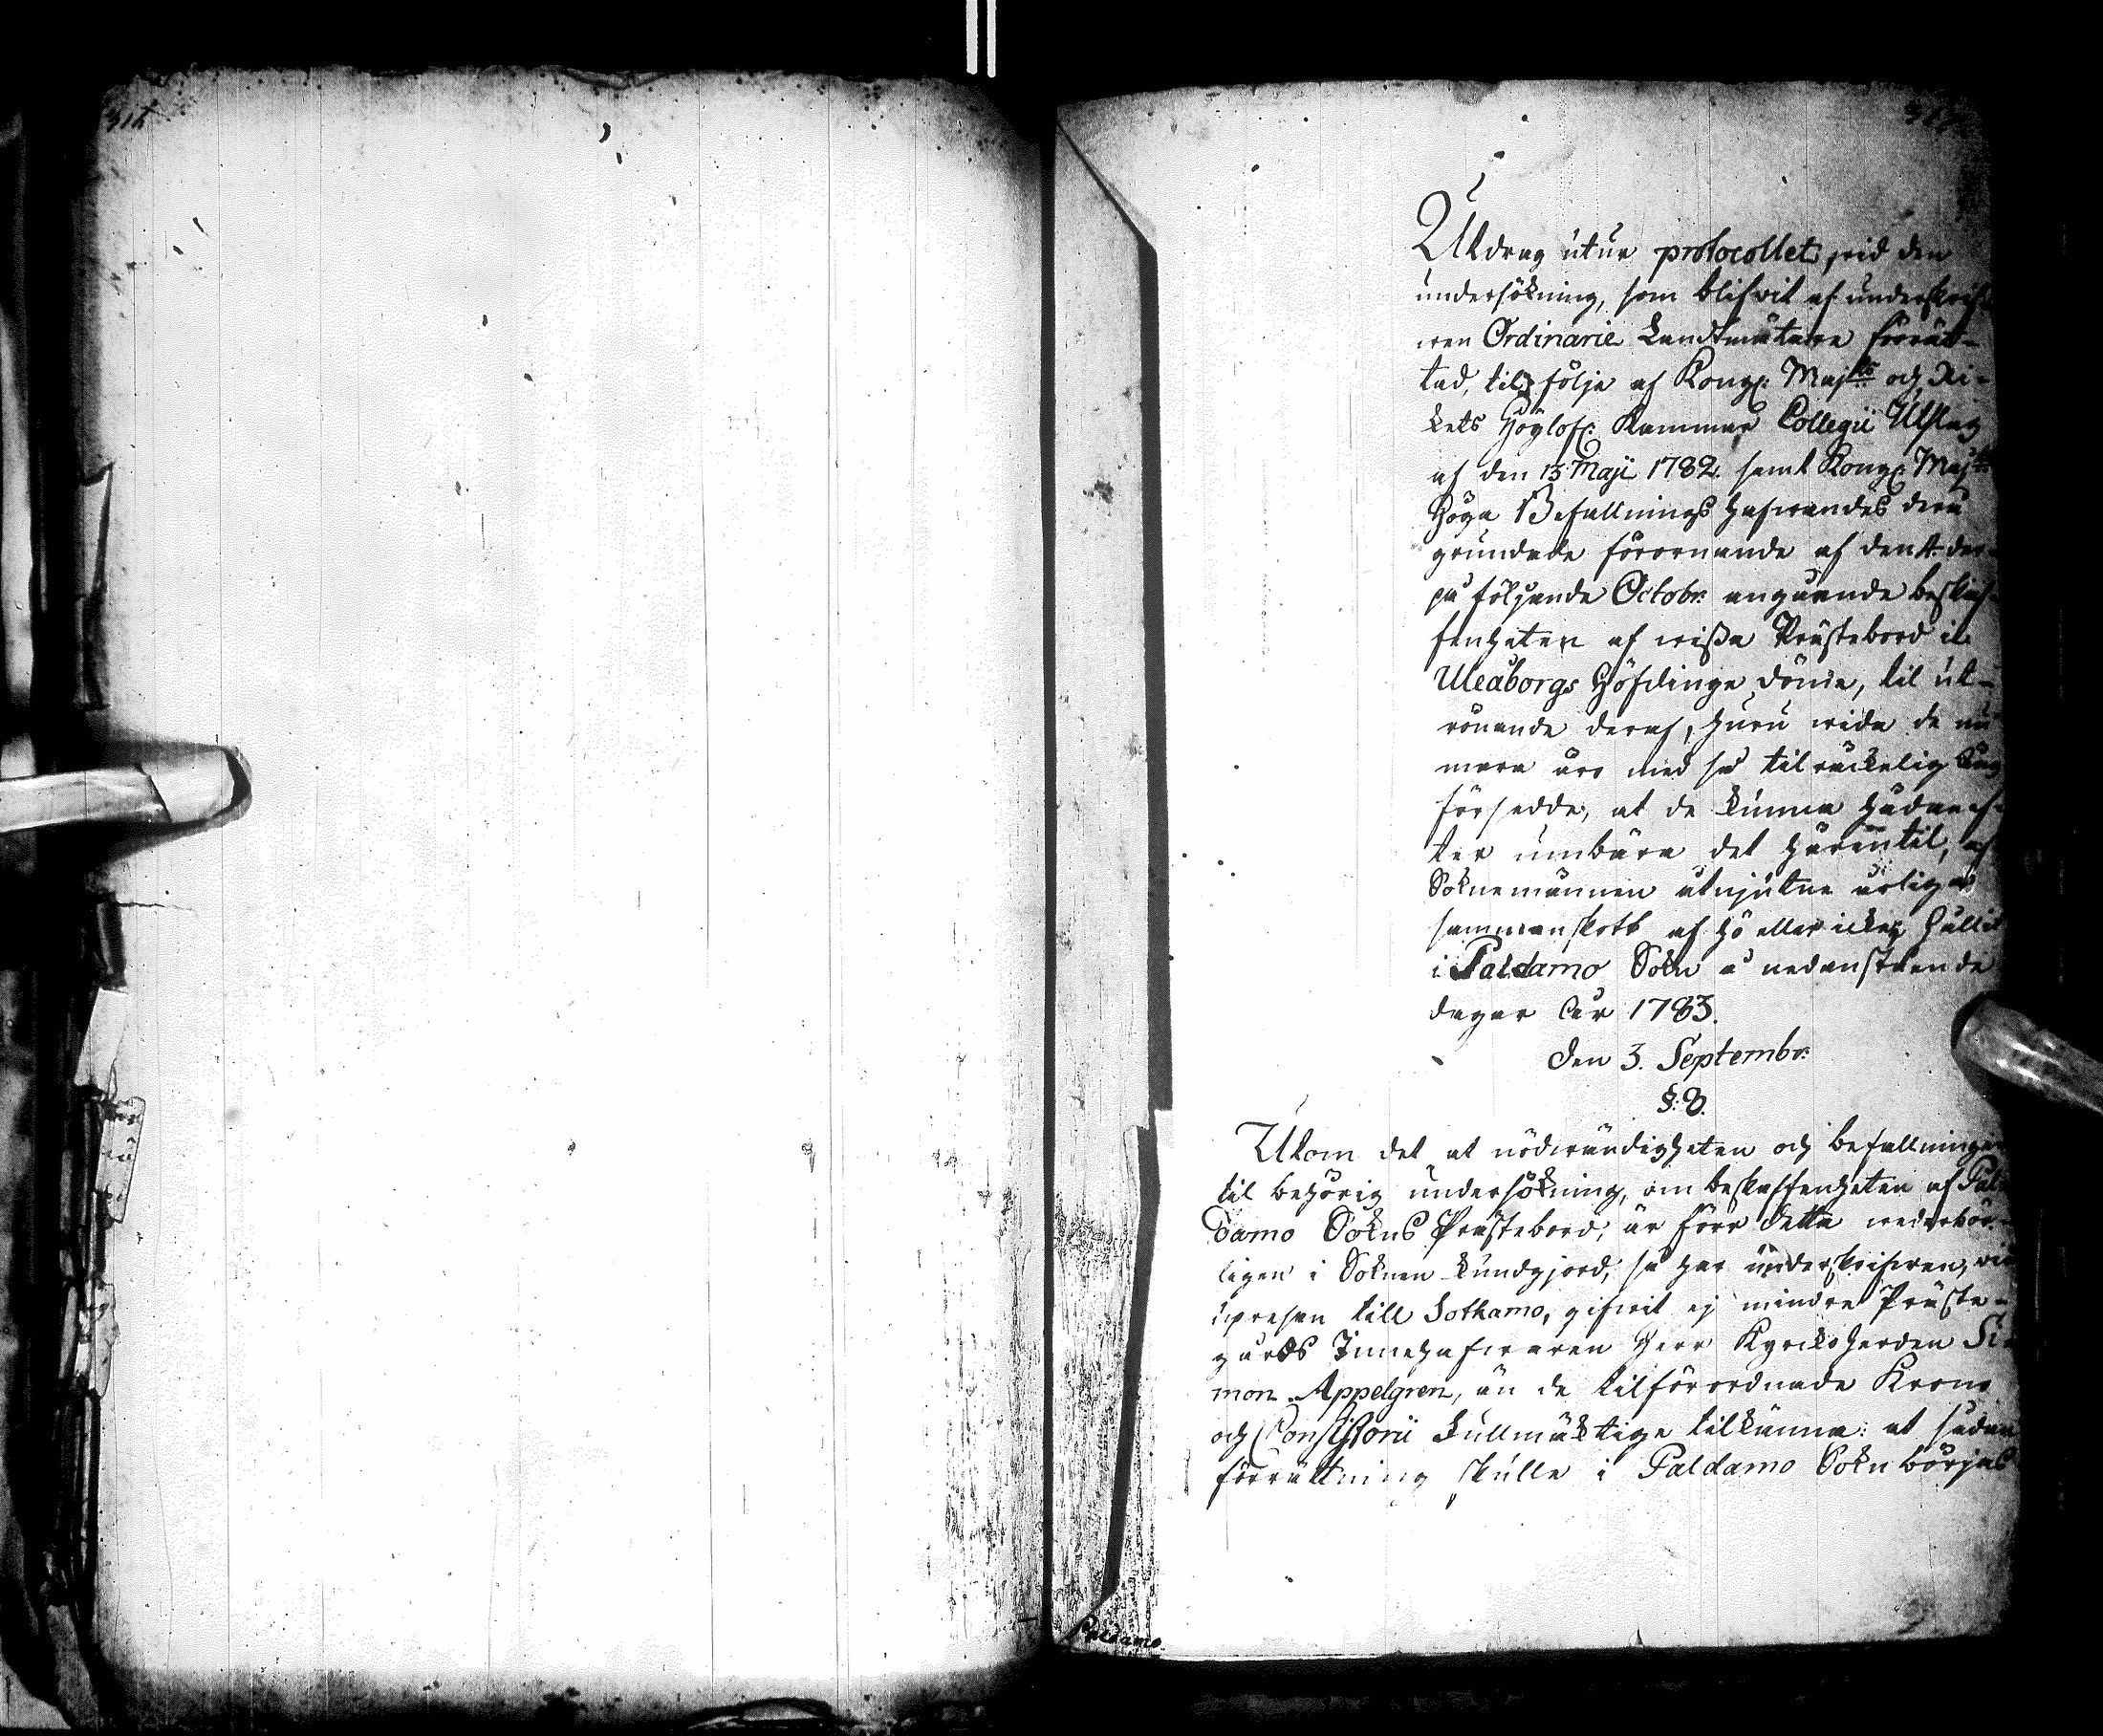 Utdrag utur protocollet, wid den
undersökning, som blifwit af underskrif-
wen Ordinarie Landtmätare förrät-
tad, til följe af Kongl: Maj:ts och Ri-
kets Höglofl: Kammar Collegii Utslag
af den 13 Maji 1782. samt Kongl: Maj:ts
Höga Befallnings hafwandes derå
grundade förornande af den 4 der-
på följande Octobr: angående beskaf-
fenheten af wißa Prästebord i
Uleåborgs Höfdinge döme, til ut-
rönande deraf, huru wida de nu-
mera äro med så tilräckelig äng
försedde, at de kunna hädanef-
ter umbära det härintil, af
Soknemännen åtnjutne årliga
sammanskott af hö eller icke; hållit
i Paldamo Sokn å nedanstående
dagar Åhr 1783.
Den 3. Septembr:
§: 8.
Utom det at nödwändigheten och befallningen
til behörig undersökning, om beskaffenheten af Pal-
damo Sokns Prästebord, är förr detta wederbör-
ligen i Soknen kundgjord, så har underskrifwen, wid
upresan till Sotkamo, gifwit ej mindre Präste-
gårds Innehafwaren Herr Kyrckoherden Si-
mon Appelgren, än de tilförordnade Krono
och Consistorii fullmäktige tilkänna: at sådan
förrättning skulle i Paldamo Sokn börjas
Paldamo.